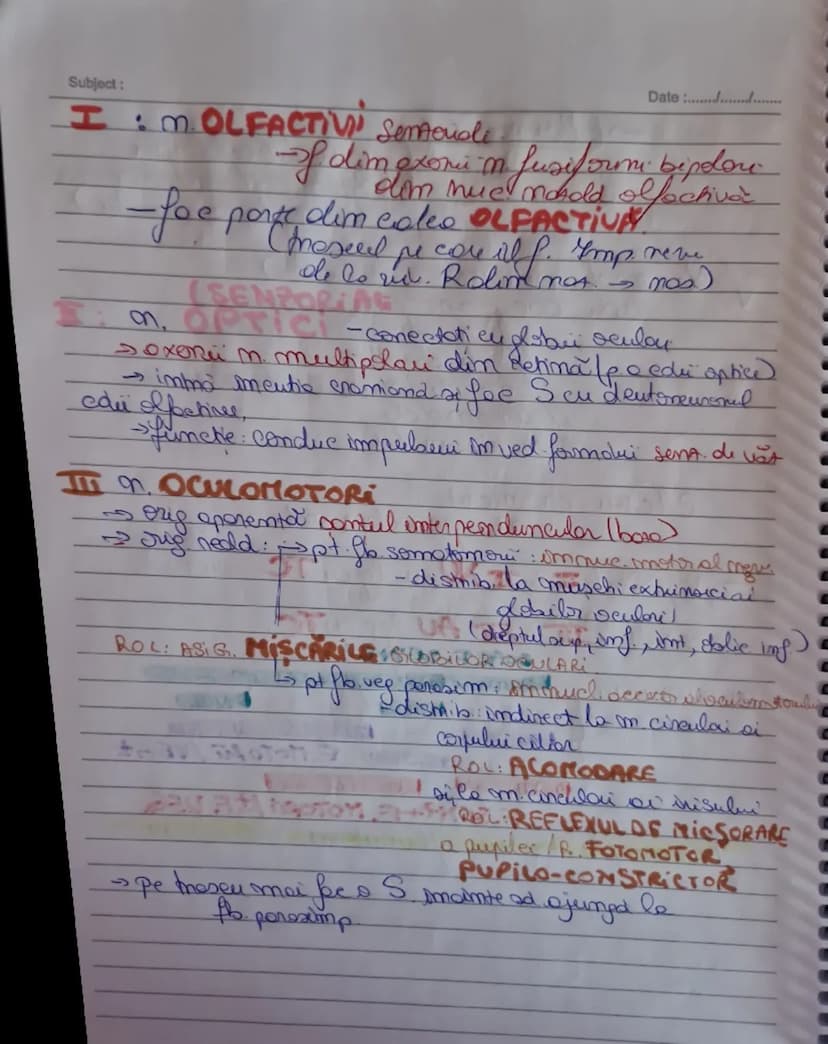 Subject :
Date :....../......./.......
I : n. OLFACTIVI senzoriali
→ f din axonii n fusiformi bipolari
din mucoasa olfactivă
- fac parte din calea OLFACTIVĂ
de la
(SENZORIALE
II : n. OPTICI - conectati cu globii oculari
→ axonii n. multipolari din retină (p a căii optice)
→ intră in cutia craniană și fac S cu deutoneuronul
căii olfactive,
→ funcție: conduc impulsuri in ved. formării senz. de văz
III n. OCULOMOTORI
→ orig aparentă spatiul interpeduncular (baza)
→ orig reală : → pt. fb somatomotorii : in nuc. motor al
- distrib. la mușchi extrinseci ai
globilor oculari
(dreptul sup, inf., int, oblic inf)
ROL: ASIG. MIȘCĂRILE GLOBILOR OCULARI
↳ pt fb. veg parasim : in nucl. accesor al oculomotorului
- distrib : indirect la m. circulari ai
corpului ciliar
ROL: ACOMODARE
și la m. circulari ai irisului
ROL: REFLEXUL DE MICSORARE
a pupilei / R. FOTOMOTOR
PUPILO-CONSTRICTOR
→ pe traseu mai fac o S inainte să ajungă la
fb parasimp